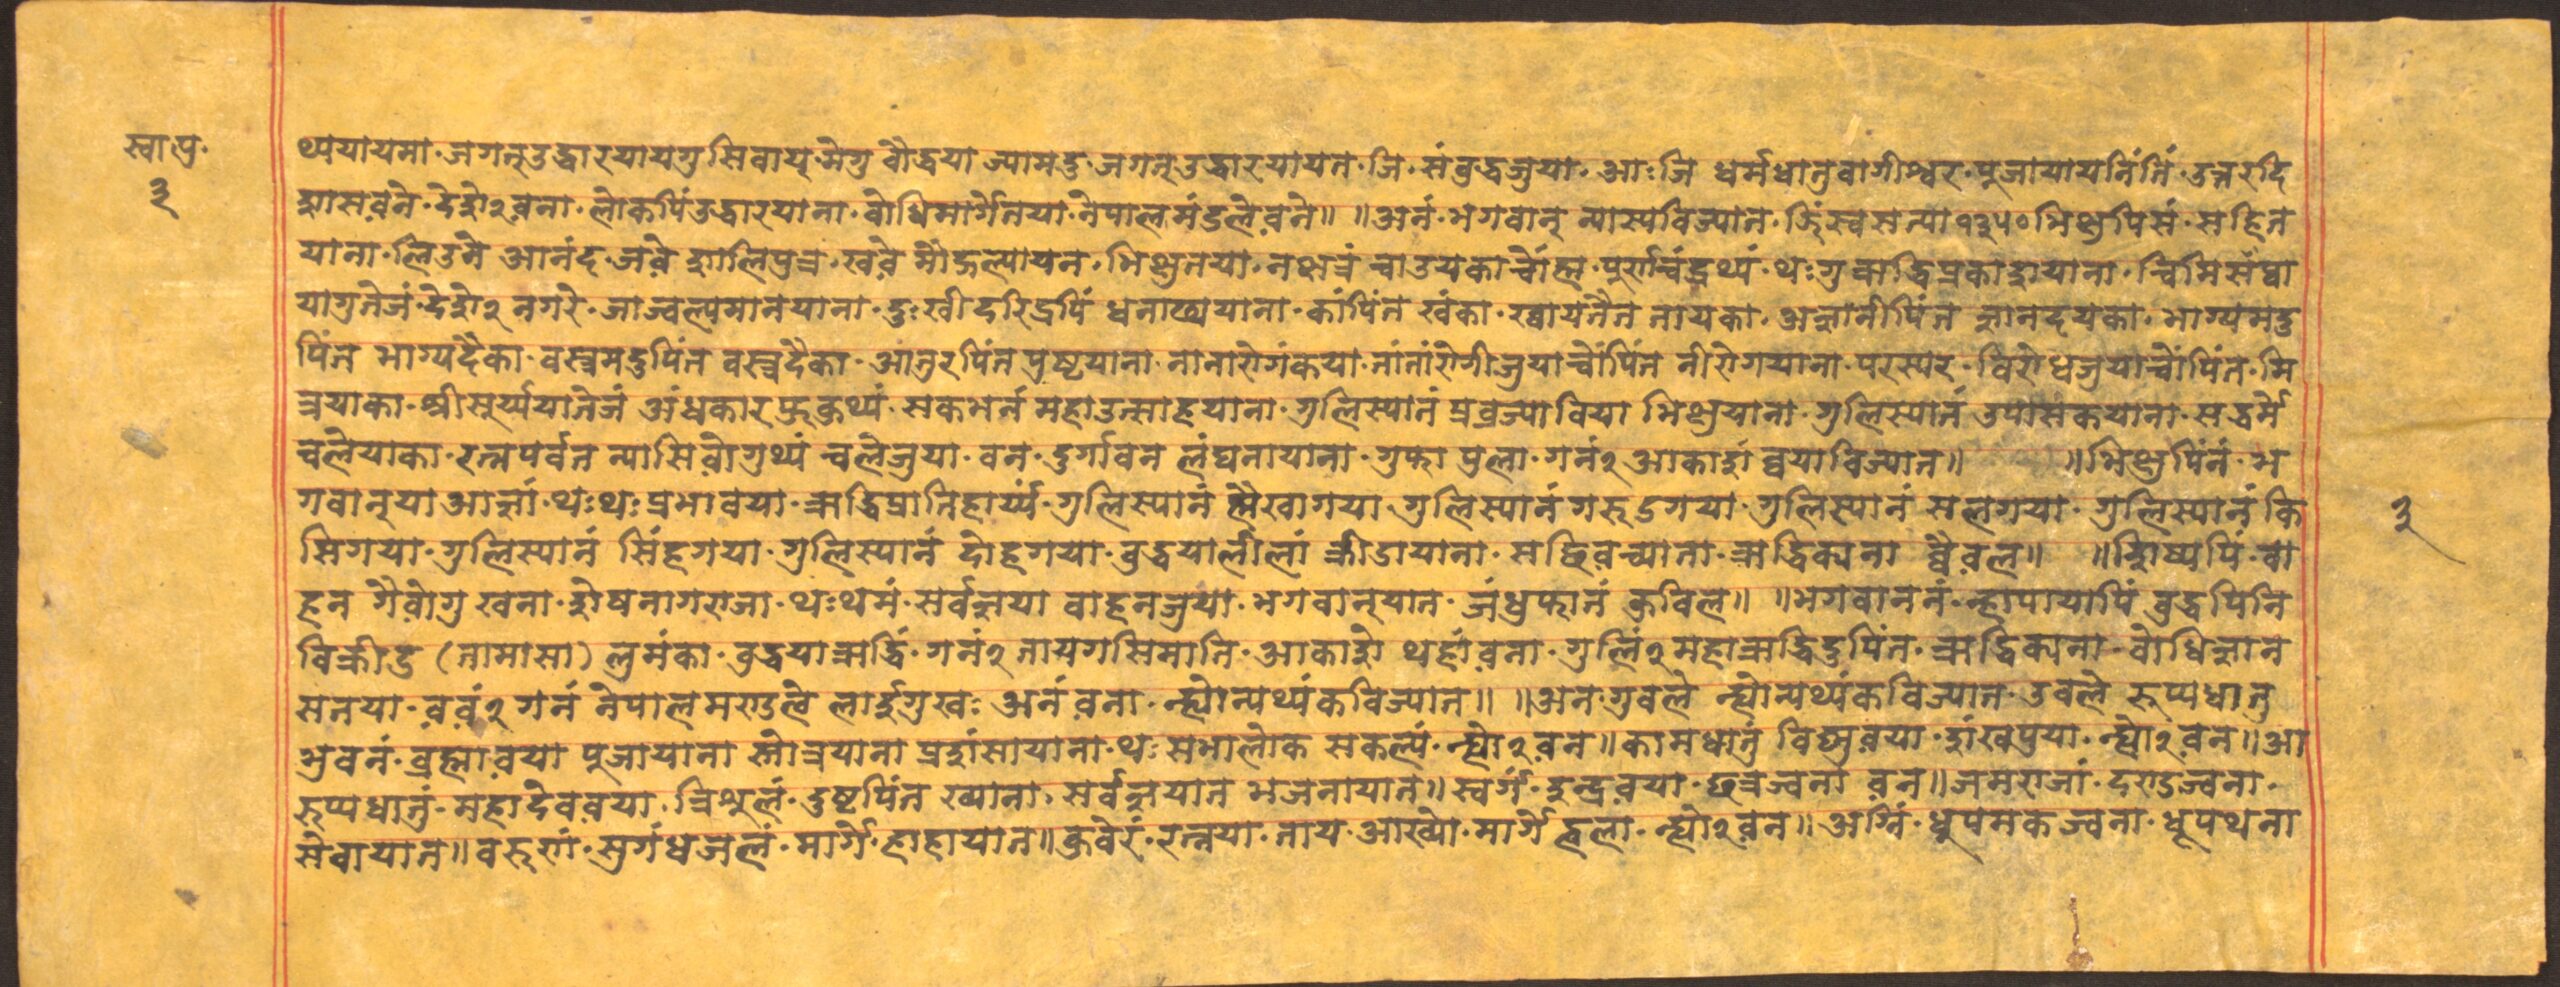 स्वा.पु.
३
थ्ययायमा.जगत्उद्धारयायगु सिवाय् मेगु बौद्धया ज्यामदु.जगत्उद्धारयायत.जि.संबुद्धजुया.आःजि धर्मधातुवागीश्वर.पुजायायनिंतिं.उत्तरदि
शासव़ने.देशे२व़ना.लोकपिंउद्धारयाना.बोधिमार्गेतया.नेपालमंडले व़ने॥ ॥अनं.भगवान् न्यास्यविज्यात.झिंस्वसत्या१३५०भिक्षुपिसं.सहित
याना.लिउने आनंद.जवे शालिपुत्र.खवे मौद्गल्यायन.भिक्षुतया.नक्षत्रं चाउयकाचोंह्म.पूर्णचंद्रथ्यं.थःगु ऋद्धि प्रकाशयाना.त्विमिसंघा
यागुतेजं.देशे२ नगरे.जाज्वल्यमानयाना.दुःखीदरिद्रपिं धनाढ्ययाना.कांपिंत खंका.ख्वायंतैत तायका.अज्ञानीपिंत ज्ञानदयका.भाग्यमदु
पिंत भाग्यदैका.वस्त्रमदुपिंत वस्त्रदैका.आतुरपिंत पुष्टयाना.नानारोगंकया.नांनांरोगीजुयाचोंपिंत नीरोगयाना.परस्पर.विरोधजुयाचोंपिंत.मि
त्रयाका.श्रीसुर्य्ययातेजं अंधकार फुकुथ्यं.सकभनं महाउत्साहयाना.गुलिस्यानं प्रव्रज्याविया भिक्षुयाना.गुलिस्यानं उपासकयाना.सद्धर्मे
चलेयाका.रत्नपर्वत न्यासिव़ोगुथ्यं चलेजुया.वन.दुर्गावन लंघनायाना.गुफा पुला.गनं२आकाशं व्वयाविज्यात॥ ॥भिक्षुपिंनं.भ
गवान्याआज्ञां.थःथःप्रभावया.ऋद्धिप्रातिहार्य्यं.गुलिस्यानं ह्मैखागया.गुलिस्यानं गरुडगया.गुलिस्यानं सलगया.गुलिस्यानं कि
सिगया.गुलिस्यानं सिंहगया.गुलिस्यानं दोहगया.बुद्धयालीलां क्रीडायाना.सद्धिव़च्याना.ऋद्धिक्यना व्वैव़ल॥ ॥शिष्यपिं.वा
हन गैव़ोगु खना.शेषनागराजा.थःथमं.सर्वज्ञया वाहनजुया.भगवान्यात.जंधुफानं कुविल॥ ॥भगवाननं.न्हापायापिं बुद्धपिनि
विक्रीडु (तामासा) लुमंका.बुद्धयाऋद्धिं.गनं२ तायगसिमाति.आकाशे थहां व़ना.गुलिं२महाऋद्धिदुपिंत.ऋद्धिक्यना.बोधिज्ञान
सतया.व़व़ं२ गनं नेपालमण्डले लाईगुखः अनं व़ना.न्ह्योन्यथ्यंकविज्यात॥ ॥अन.गुबले न्ह्योन्यथ्यंकविज्यात.उबले रूप्यधातु
भुवनं.ब्रह्मा.व़या पुजायाना स्तोत्रयाना प्रशंसायाना.थः सभालोक सकल्यं.न्ह्यो२व़न॥कामधातुं विष्णुव़या.शंखपुया.न्ह्यो२व़न॥आ
रुप्यधातुं.महादेवव़या.त्रिशुलं.दुष्टपिंत ख्याना.सर्वज्ञयात भजनायात॥स्वर्गं.इन्द्रव़या.छत्रज्वना व़न॥जमराजां.दण्डज्वना.
सेवायात॥वरुणं.सुगंधजलं.मार्गे.हाहायात॥कुबेरं.रत्नया.ताय.आख्ये.मार्गे ह्वला.न्ह्यो२व़न॥अग्निं.धुपमकज्वना.धूपथना
३